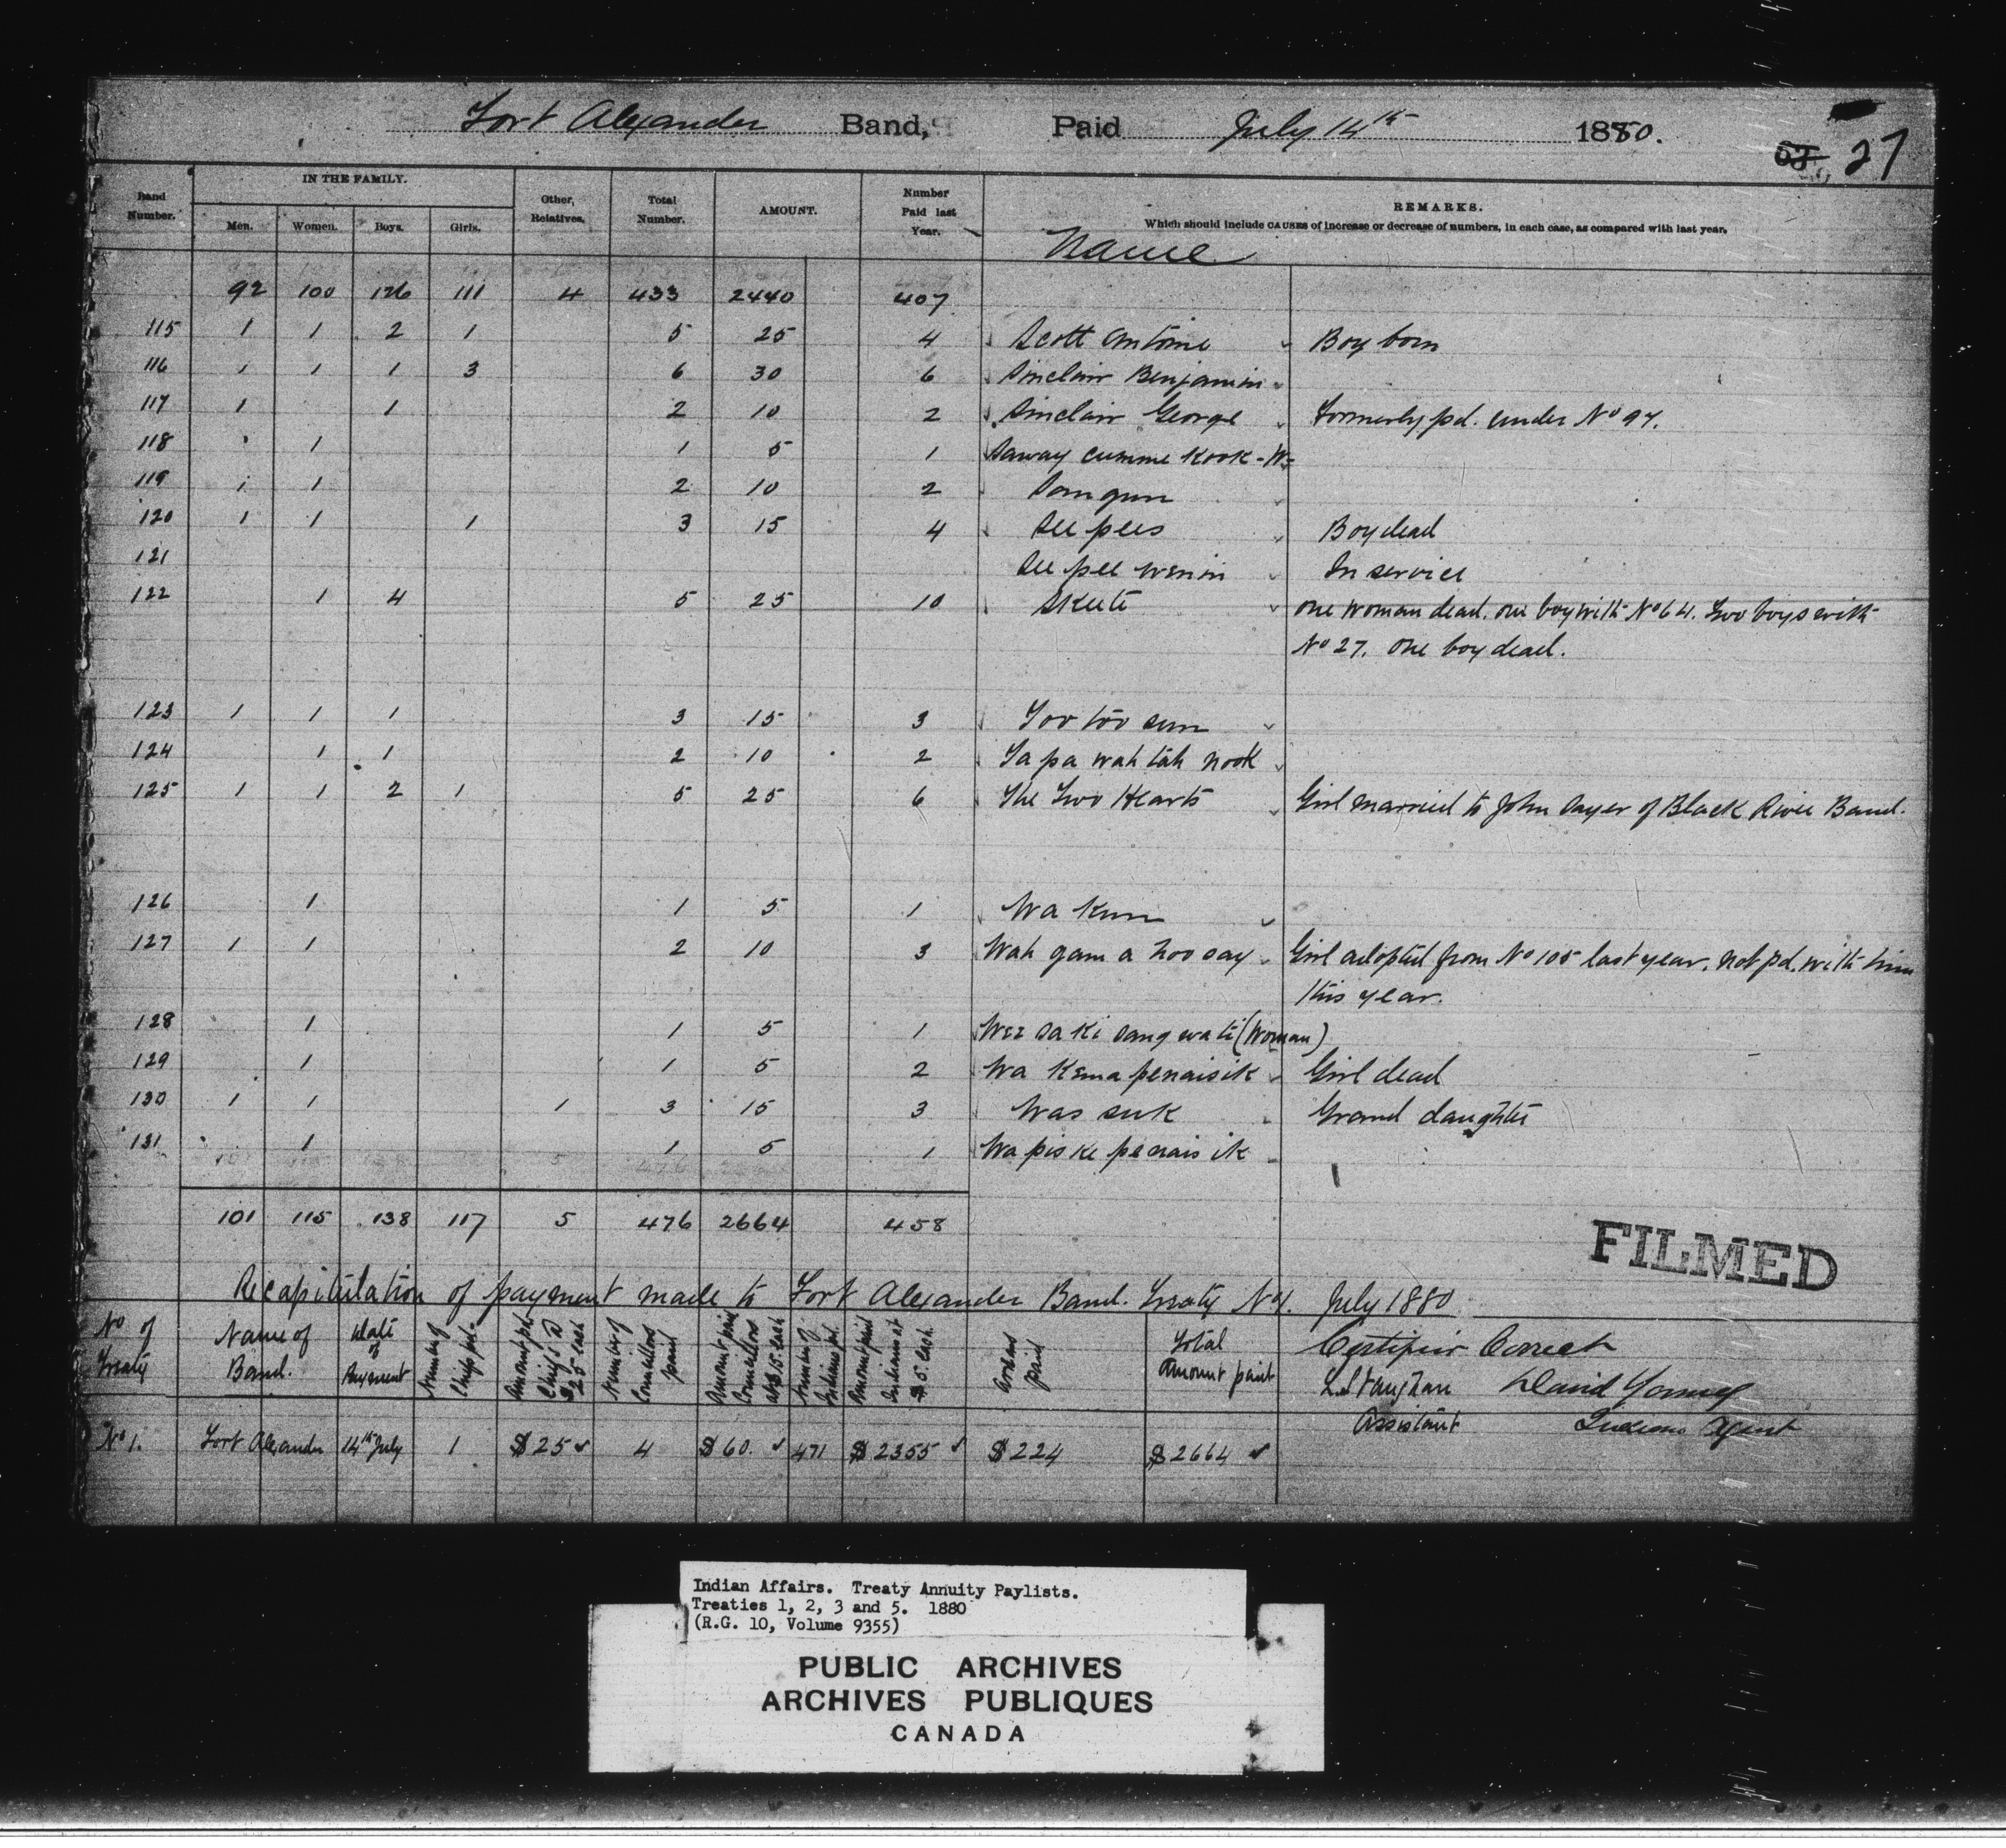 Fort Alexander Band, Paid July 14th 1880. 27
Band Number. IN THE FAMILY. Men. Women. Boys. Girls. Other, Relatives. Total Number. AMOUNT. Number Paid last Year. Name REMARKS.
Which should include CAUSES of increase or decrease of numbers, in each case, as compared with last year.
92 100 126 111 4 433 2440 407
115 1 1 2 1 5 25 4 Scott Antoine Boy born
116 1 1 1 3 6 30 6 Sinclair Benjamin
117 1 1 2 10 2 Sinclair George Formerly pd. under No 97.
118 1 1 5 1 Saway cumme Kook - W
119 1 1 2 10 2
120 1 1 1 3 15 4 See pees Boy dead
121 See pee wenin In service
122 1 4 5 25 10 Skete one woman dead. one boy with No 64. Two boys with
No 27. one boy dead.
123 1 1 1 3 15 3 Too too sum
124 1 1 2 10 2 Ta pa wah tah nook
125 1 1 2 1 5 25 6 The Two Hearts Girl married to John Sayer of Black River Band.
126 1 1 5 1 Wa Kum
127 1 1 2 10 3 Wah gam a hoo say Girl adopted from No 105 last year. not pd. with him
this year.
128 1 1 5 1 Wee sa ki sang wate (Woman)
129 1 1 5 2 Wa Kema penaisik Girl dead
130 1 1 1 3 15 3 Was suk Grand daughter
131 1 1 5 1 Wa pis ke penais ik
101 115 138 117 5 476 2664 458
FILMED
Recapitulation of payment made to Fort Alexander Band. Treaty No 1. July 1880
No of Treaty Name of Band. Date of Payment Number of Chiefs pd. Amount pd Chiefs @ $25 each Number of Councillors paid Amount paid Councillors at $15 each Number of Indians pd. Amount paid Indians at $5 each. Arrears paid Total Amount paid Certified Correct
David Young
Assistant Indian Agent
No 1. Fort Alexander 14th July 1 $25 4 $60. 471 $2355 $224 $2664
Indian Affairs. Treaty Annuity Paylists.
Treaties 1, 2, 3 and 5. 1880
(R.G. 10, Volume 9355)
PUBLIC ARCHIVES
ARCHIVES PUBLIQUES
CANADA